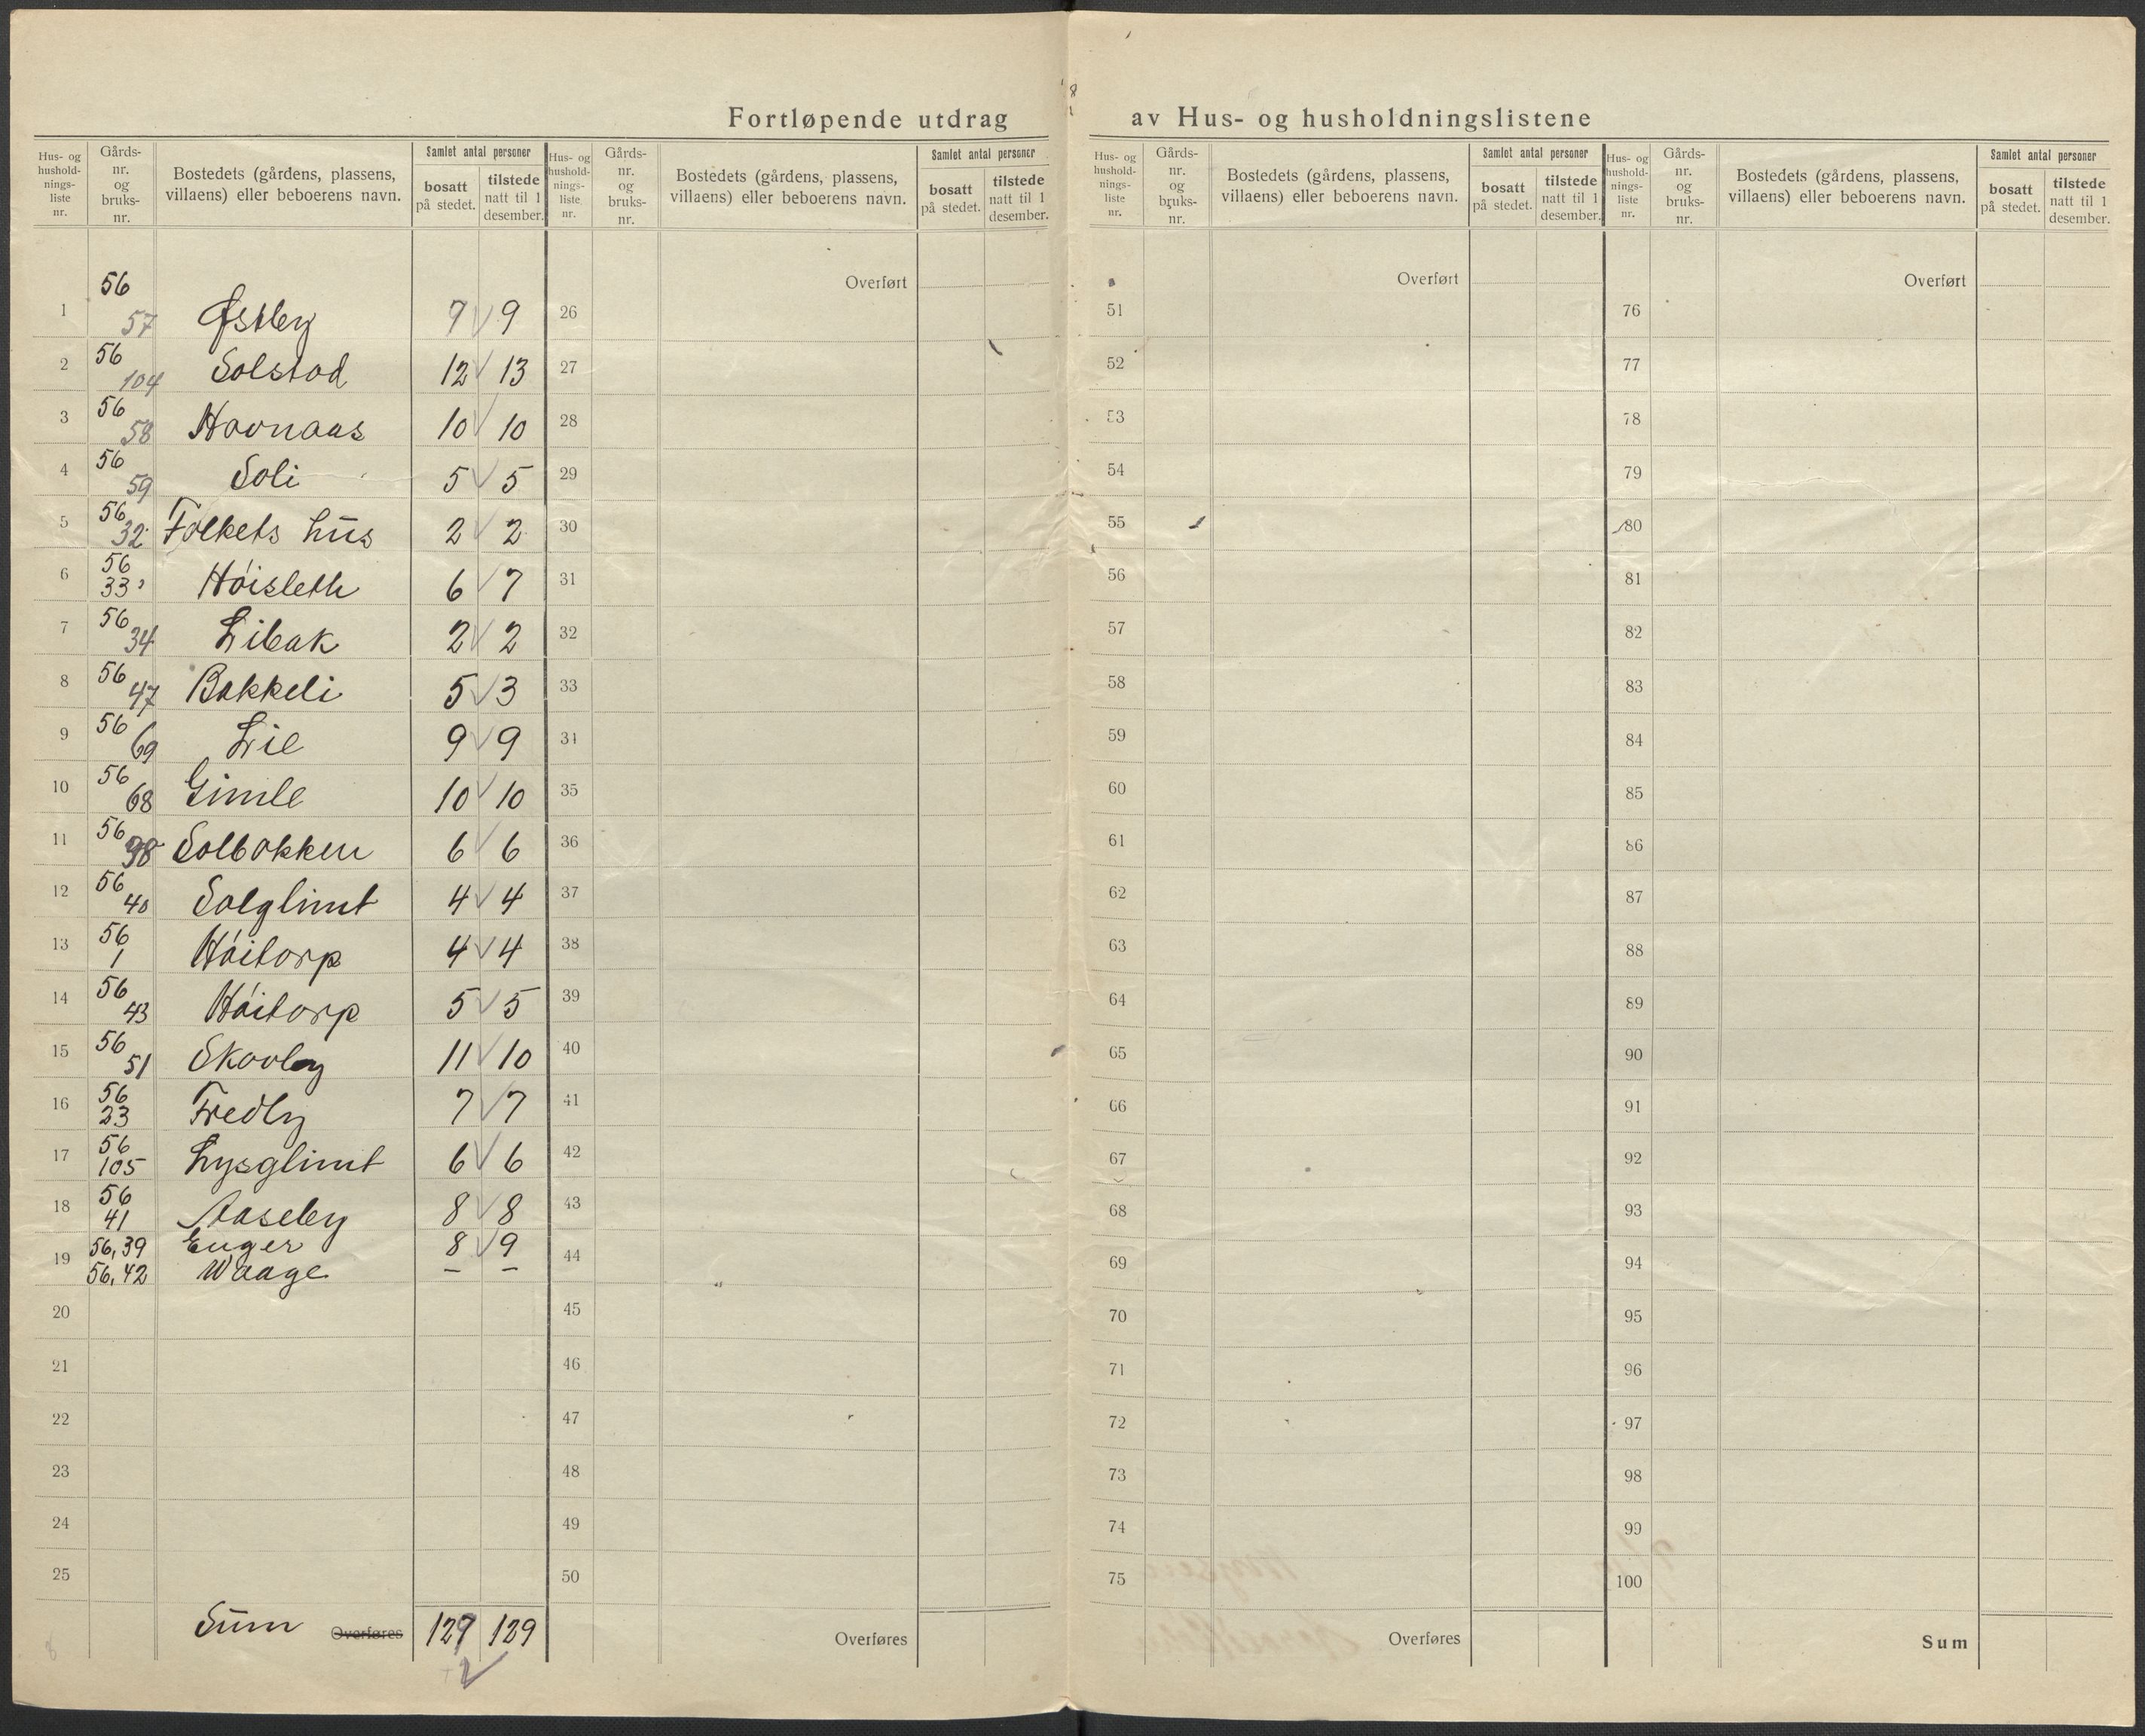 Fortløpende utdrag av Hus- og husholdningslistene
Hus- og hushold-nings-liste nr. Gårds-nr. og bruks-nr. Bostedets (gårdens, plassens, villaens) eller beboerens navn. Samlet antal personer bosatt på stedet. tilstede natt til 1 desember.
Hus- og hushold-nings-liste nr. Gårds-nr. og bruks-nr. Bostedets (gårdens, plassens, villaens) eller beboerens navn. Samlet antal personer bosatt på stedet. tilstede natt til 1 desember.
Hus- og hushold-nings-liste nr. Gårds-nr. og bruks-nr. Bostedets (gårdens, plassens, villaens) eller beboerens navn. Samlet antal personer bosatt på stedet. tilstede natt til 1 desember.
Hus- og hushold-nings-liste nr. Gårds-nr. og bruks-nr. Bostedets (gårdens, plassens, villaens) eller beboerens navn. Samlet antal personer bosatt på stedet. tilstede natt til 1 desember.
1 56 57 Østby 9 9
2 56 104 Solstad 12 13
3 56 58 Havnaas 10 10
4 56 59 Soli 5 5
5 56 32 Folkets hus 2 2
6 56 33 Høisleth 6 7
7 56 34 Libak 2 2
8 56 47 Bakkeli 5 3
9 56 69 Lie 9 9
10 56 68 Gimle 10 10
11 56 98 Solbakken 6 6
12 56 40 Solglimt 4 4
13 56 1 Høitorp 4 4
14 56 43 Høitorp 5 5
15 56 51 Skovly 11 10
16 56 23 Fredly 7 7
17 56 105 Lysglimt 6 6
18 56 41 Aaseby 8 8
19 56,39 Enger 8 9
56,42 Waage – –
20
21
22
23
24
25
Sum Overføres 129 129
Overført
26
27
28
29
30
31
32
33
34
35
36
37
38
39
40
41
42
43
44
45
46
47
48
49
50
Overføres
Overført
51
52
53
54
55
56
57
58
59
60
61
62
63
64
65
66
67
68
69
70
71
72
73
74
75
Overføres
Overført
76
77
78
79
80
81
82
83
84
85
86
87
88
89
90
91
92
93
94
95
96
97
98
99
100
Sum